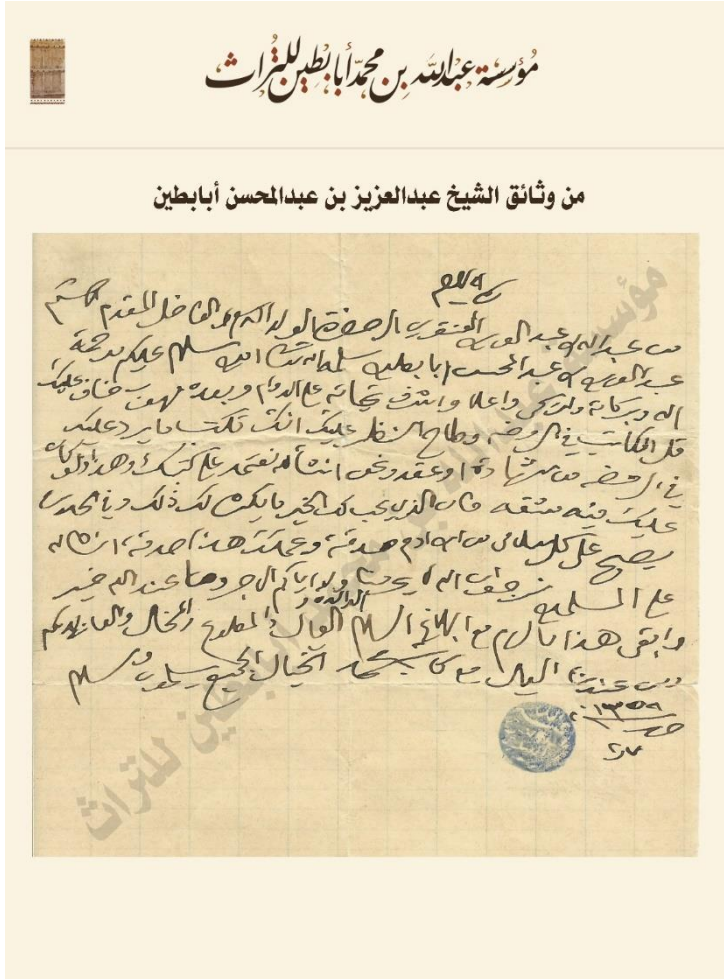 مؤسسة عبدالله بن محمد أبابطين للتراث
من وثائق الشيخ عبدالعزيز بن عبدالمحسن أبابطين
من عبد الله بن عبد العزيز العنقري الى حضرة الولد المكرم والفاضل المقدم
عبد العزيز بن عبد المحسن ابا بطين سلمه الله سلام عليكم ورحمة
الله وبركاته وازكى واعلا واشرف تحياته على الدوام وبعده
قل الكاتب في الروضه وطاح النظر عليك انك تكتب ما يرد عليك
في الروضه من شهادة او عقد ونحن انشا الله نعتمد على كتبك وهذا ولو كان
عليك فيه مشقه فان الذي يحب لك الخير ما يكره لك ذلك وفي الحديث
يصبح على كل سلامى من ابن ادم صدقة وعملك هذا صدقة انشا الله
على المسلمين نرجو ان الله لا يحرمنا واياكم الاجر وما عند الله خير
وابقى هذا ما لزم مع ابلاغ السلام الوالده و العيال
ومن عندنا العيال مع كاتبه محمد الخيال الجميع يسلمون والسلام
١٣٥٩
مؤسسة عبدالله بن محمد أبابطين للتراث